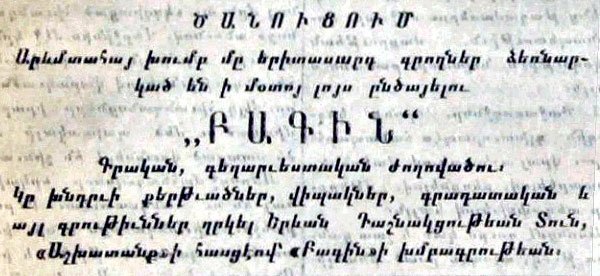 ԾԱՆՈՒՑՈՒՄ
Արևմտահայ խումբ մը երիտասարդ գրողներ ձեռնար-
կած են ի մօտոյ լոյս ընծայելու
„ԲԱԳԻՆ“
Գրական, գեղարւեստական ժողովածու:
Կը խնդրւի քերթւածներ, վիպակներ, գրադատական և
այլ գրութիւններ ղրկել Երևան Դաշնակցութեան Տուն,
«Աշխատանք»ի հասցէով՝ «Բագին»ի խմբագրութեան: